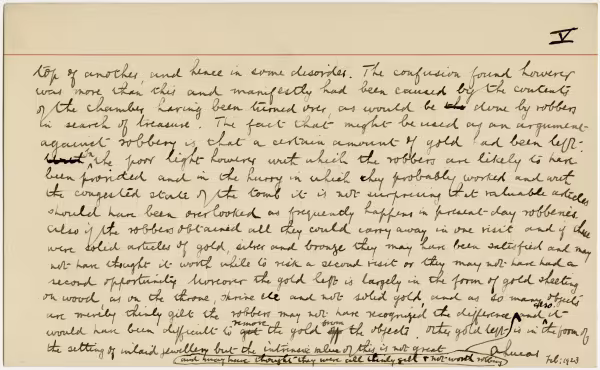 V
top of another, and hence in some disorder. The confusion found however
was more than this and manifestly had been caused by the contents
of the chamber having been turned over, as would be the done by robbers
in search of treasure. The fact that might be used as an argument
against robbery is that a certain amount of gold had been left.
in the poor light however with which the robbers are likely to have
been provided and in the hurry in which they probably worked and with
the congested state of the tomb it is not surprising that valuable articles
should have been overlooked as frequently happens in present-day robberies.
Also if the robbers obtained all they could carry away in one visit and if these
were solid articles of gold, silver and bronze they may have been satisfied and may
not have thought it worth while to risk a second visit or they may not have had a
second opportunity. Moreover the gold left is largely in the form of gold sheeting
on wood, as on the throne, shrine etc and not solid gold, and as so many objects
are merely thinly gilt the robbers may not have recognised the difference and it
would have been difficult to get remove the gold off from the objects. Other gold left also is in the form of
the setting of inlaid jewellery but the intrinsic value of this is not great
and may have thought they were all thinly gilt & not worth robbing
A Lucas
Feb: 1923